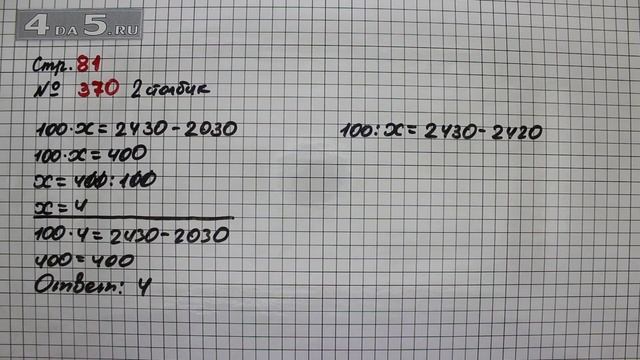 4DA5.RU
Стр. 81
№ 370 2 столбик
100·x=2430-2030
100·x=400
x=400:100
x=4
100·4=2430-2030
400=400
Ответ: 4
100:x=2430-2420